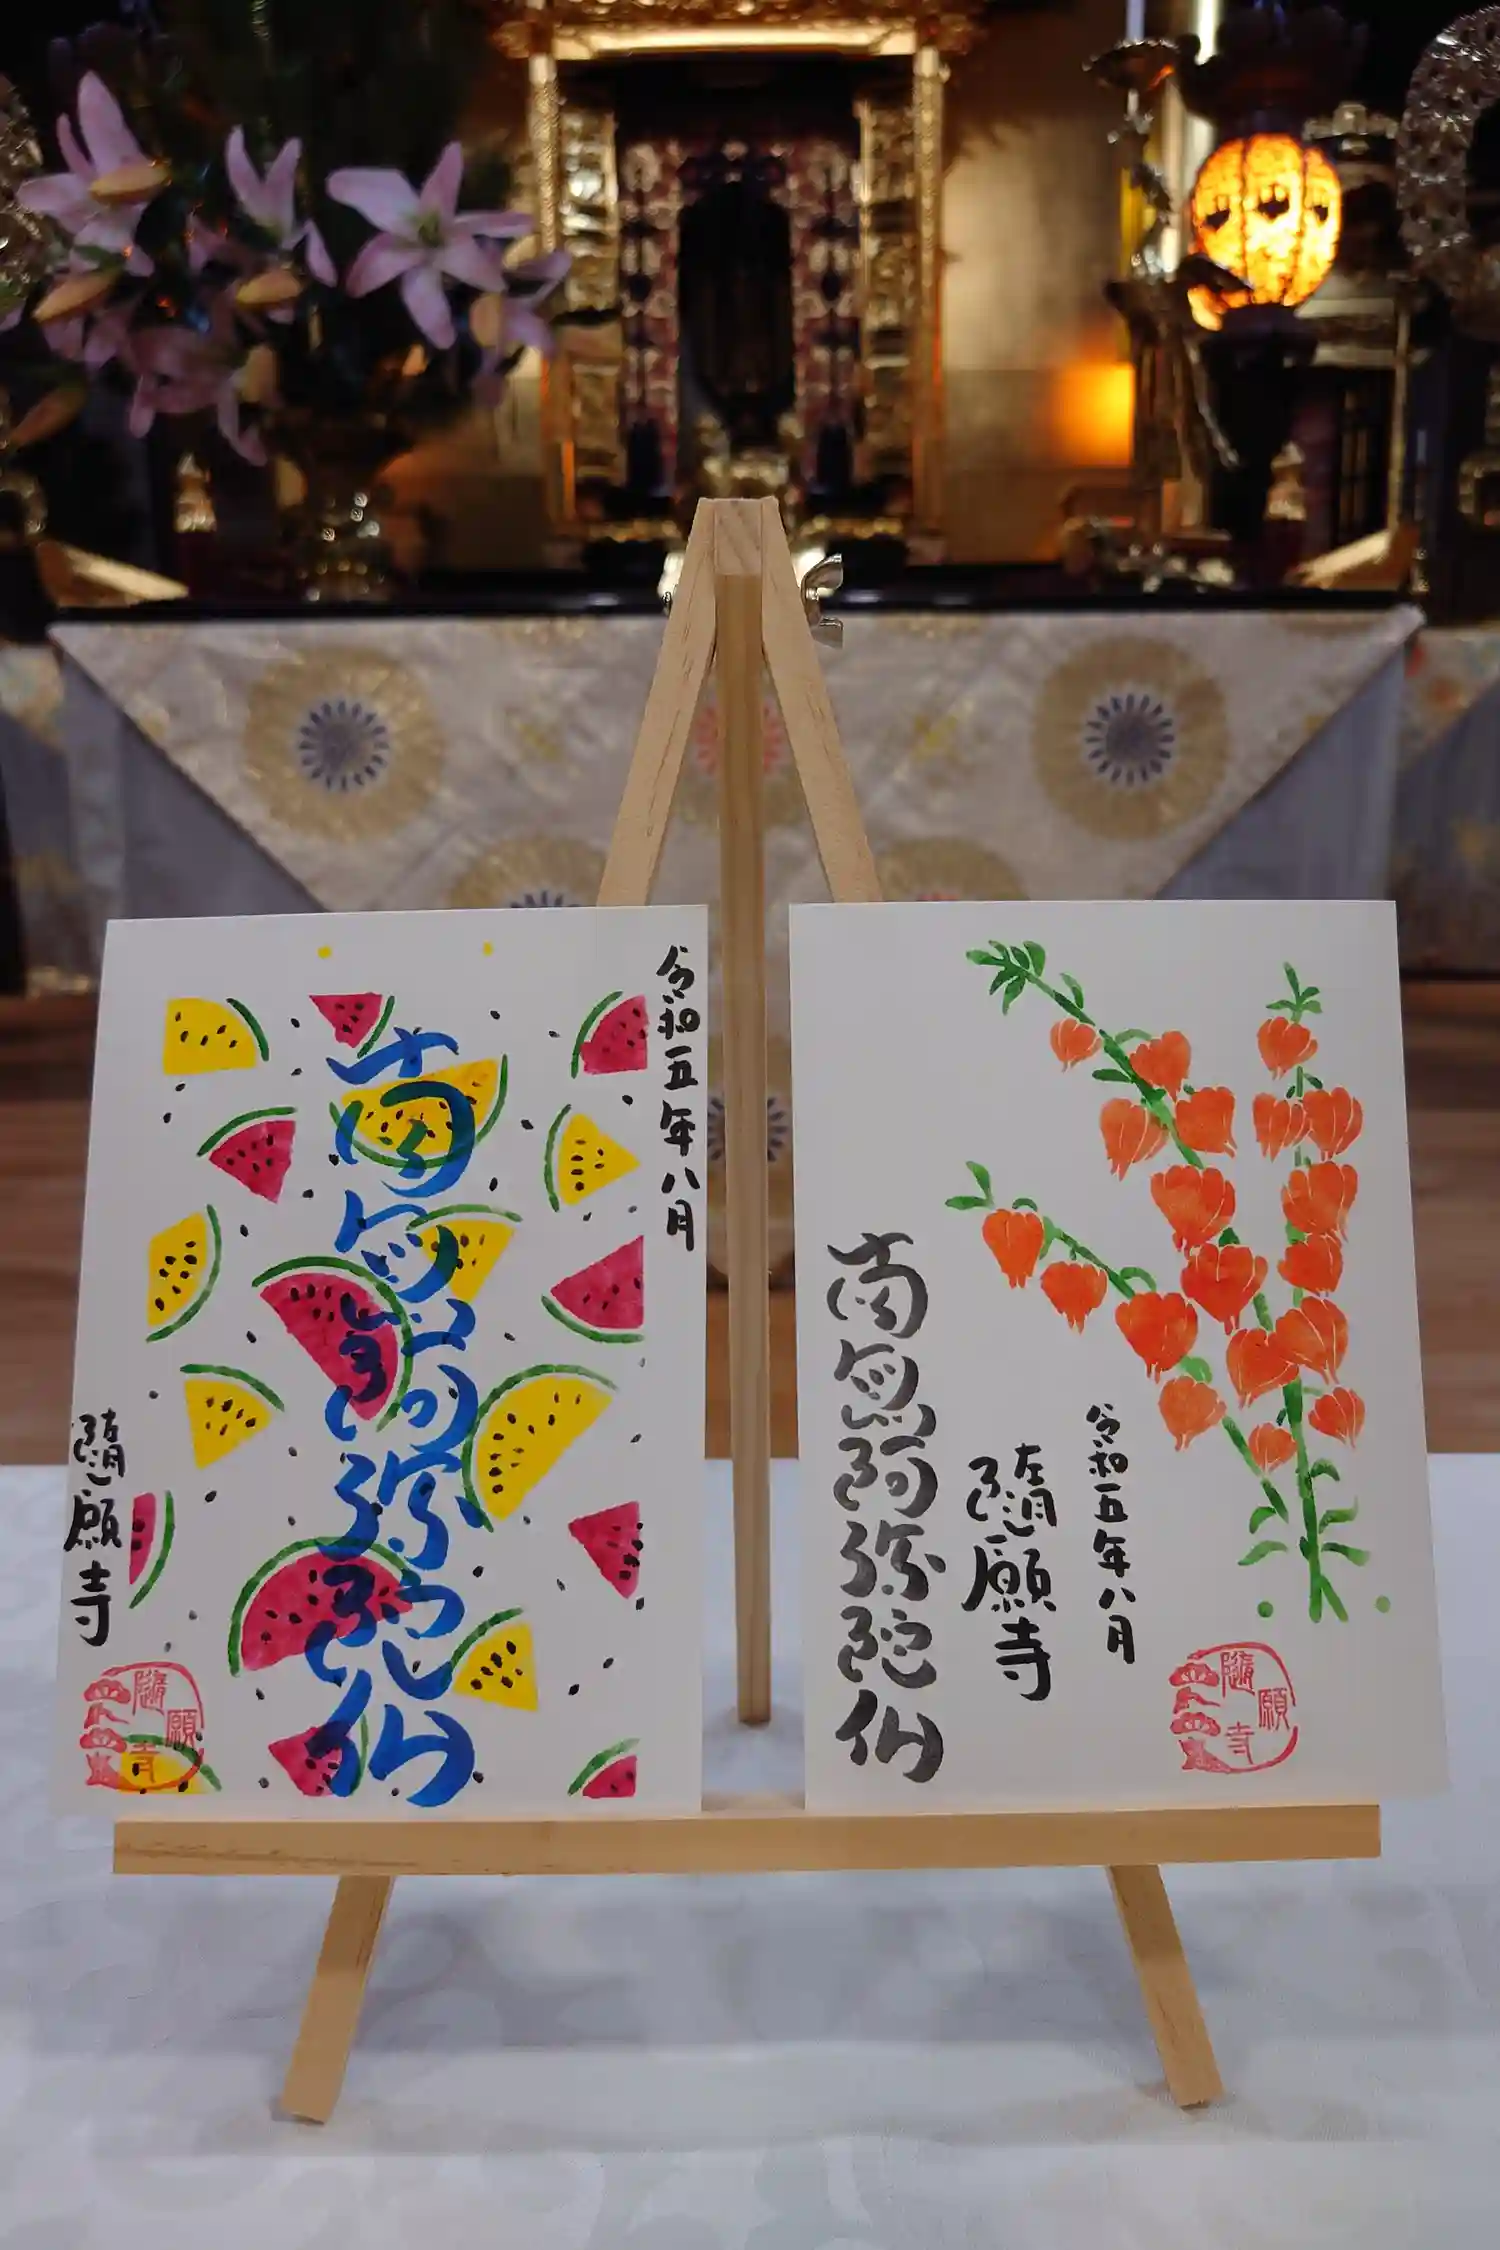 令和五年八月
南無阿弥陀仏
隨願寺
隨願寺
令和五年八月
隨願寺
南無阿弥陀仏
隨願寺